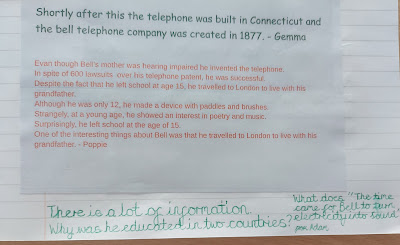 Shortly after this the telephone was built in Connecticut and
the bell telephone company was created in 1877. - Gemma
Evan though Bell's mother was hearing impaired he invented the telephone.
In spite of 600 lawsuits over his telephone patent, he was successful.
Despite the fact that he left school at age 15, he travelled to London to live with his
grandfather.
Although he was only 12, he made a device with paddles and brushes.
Strangely, at a young age, he showed an interest in poetry and music.
Surprisingly, he left school at the age of 15.
One of the interesting things about Bell was that he travelled to London to live with his
grandfather. - Poppie
There is a lot of information.
Why was he educated in two countries?
What does "The time
came for Bell to turn
electricity into sound"
Adam